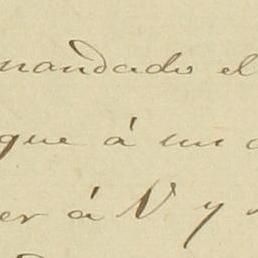 mandado el
que á un
er á V y